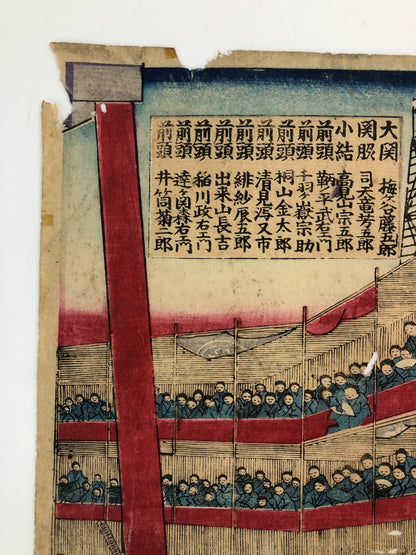 大関 梅ケ谷藤五郎
関脇 司天竜芳五郎
小結 高見山宗五郎
前頭 鞆ノ平武右エ門
前頭 千羽ケ嶽宗助
前頭 桐山金太郎
前頭 清見潟又市
前頭 緋縅辰五郎
前頭 出来山長吉
前頭 稲川政右エ門
前頭 達ケ関森右エ門
前頭 井筒菊二郎